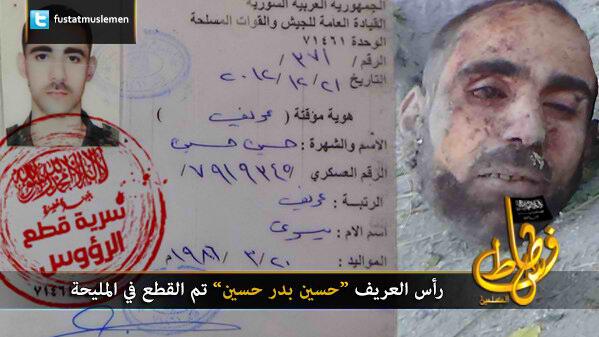 fustatmuslemen
الجمهورية العربية السورية
القيادة العامة للجيش والقوات المسلحة
الوحدة ٧١٤٦١
الرقم / ٣٧١ /
التاريخ ٢٠١٢/١٢/٢١
هوية مؤقتة ( عريف )
الأسم والشهرة :
الرقم العسكري /٧٩١٩٣٤٥/
الرتبة : عريف
اسم الام :
المواليد : ٣/٢٠/ ١٩٨٦م
سرية قطع
الرؤوس
فسطاط
المسلمين
رأس العريف "حسين بدر حسين" تم القطع في المليحة